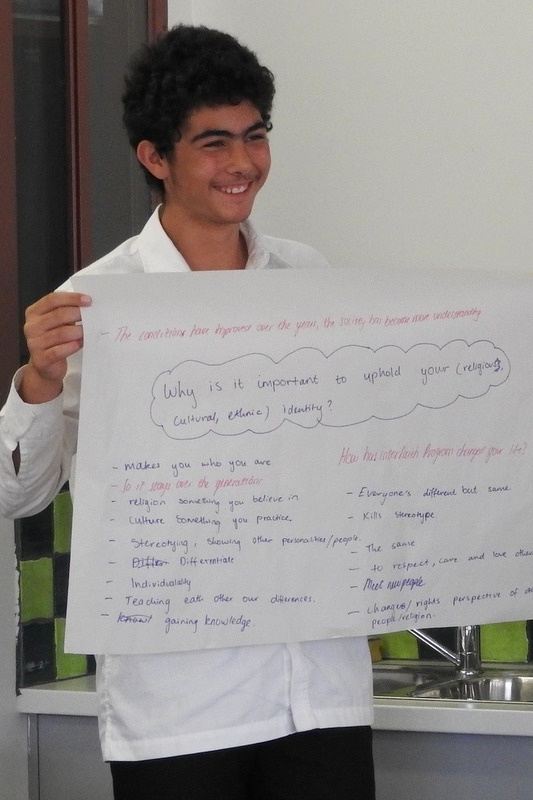 - The conditions have improved over the years, the society has become more understanding
Why is it important to uphold your (religious,
cultural, ethnic) identity?
- makes you who you are
- So it stays over the generations
- religion something you believe in
- Culture something you practice.
- Stereotyping, showing other personalities/people.
- Differentiate
- Individuality
- Teaching eath other our differences.
- gaining knowledge.
How has interfaith Program changed your life?
- Everyone's different but same.
- Kills stereotype
- The same
- to respect, care and love
- Meet new people
- changes/ rights perspective of
people/religion.